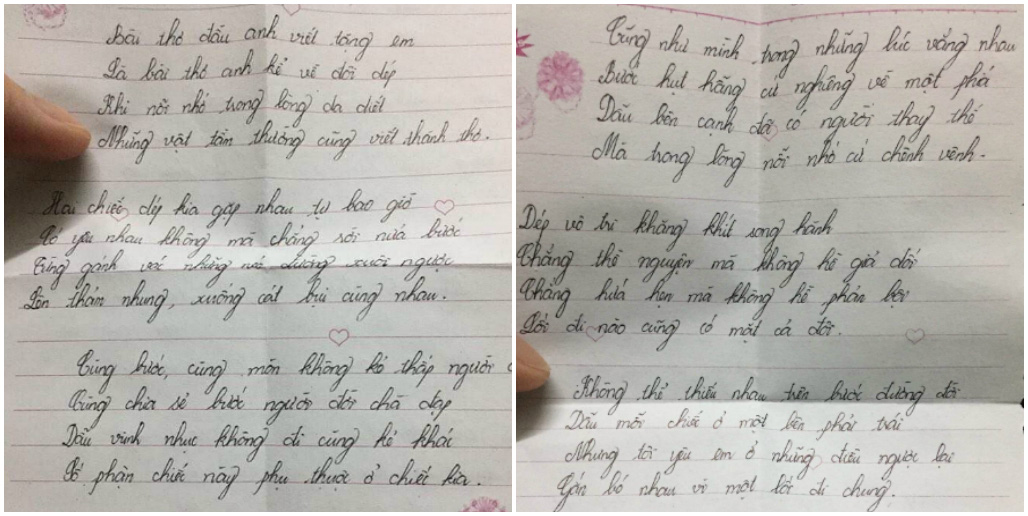 Bài thơ đầu anh viết tặng em
Là bài thơ anh kể về đôi dép
Khi nỗi nhớ trong lòng da diết
Những vật tầm thường cũng viết thành thơ.
Hai chiếc dép kia gặp nhau tự bao giờ
Có yêu nhau không mà chẳng rời nửa bước
Cùng gánh vác những nẻo đường xuôi ngược
Lên thảm nhung, xuống cát bụi cùng nhau.
Cùng bước, cùng mòn không kẻ thấp người
Cùng chia sẻ bước người đời chà đạp
Dẫu vinh nhục không đi cùng kẻ khác
Số phận chiếc này phụ thuộc ở chiếc kia.
Cũng như mình trong những lúc vắng nhau
Bước hụt hẫng cứ nghiêng về một phía
Dẫu bên cạnh đã có người thay thế
Mà trong lòng nỗi nhớ cứ chênh vênh.
Dép vô tri khăng khít song hành
Chẳng thề nguyện mà không hề giả dối
Chẳng hứa hẹn mà không hề phản bội
Lối đi nào cũng có mặt cả đôi.
Không thể thiếu nhau trên bước đường đời
Dẫu mỗi chiếc ở một bên phải trái
Nhưng tôi yêu em ở những điều ngược lại
Gắn bó nhau vì một lối đi chung.